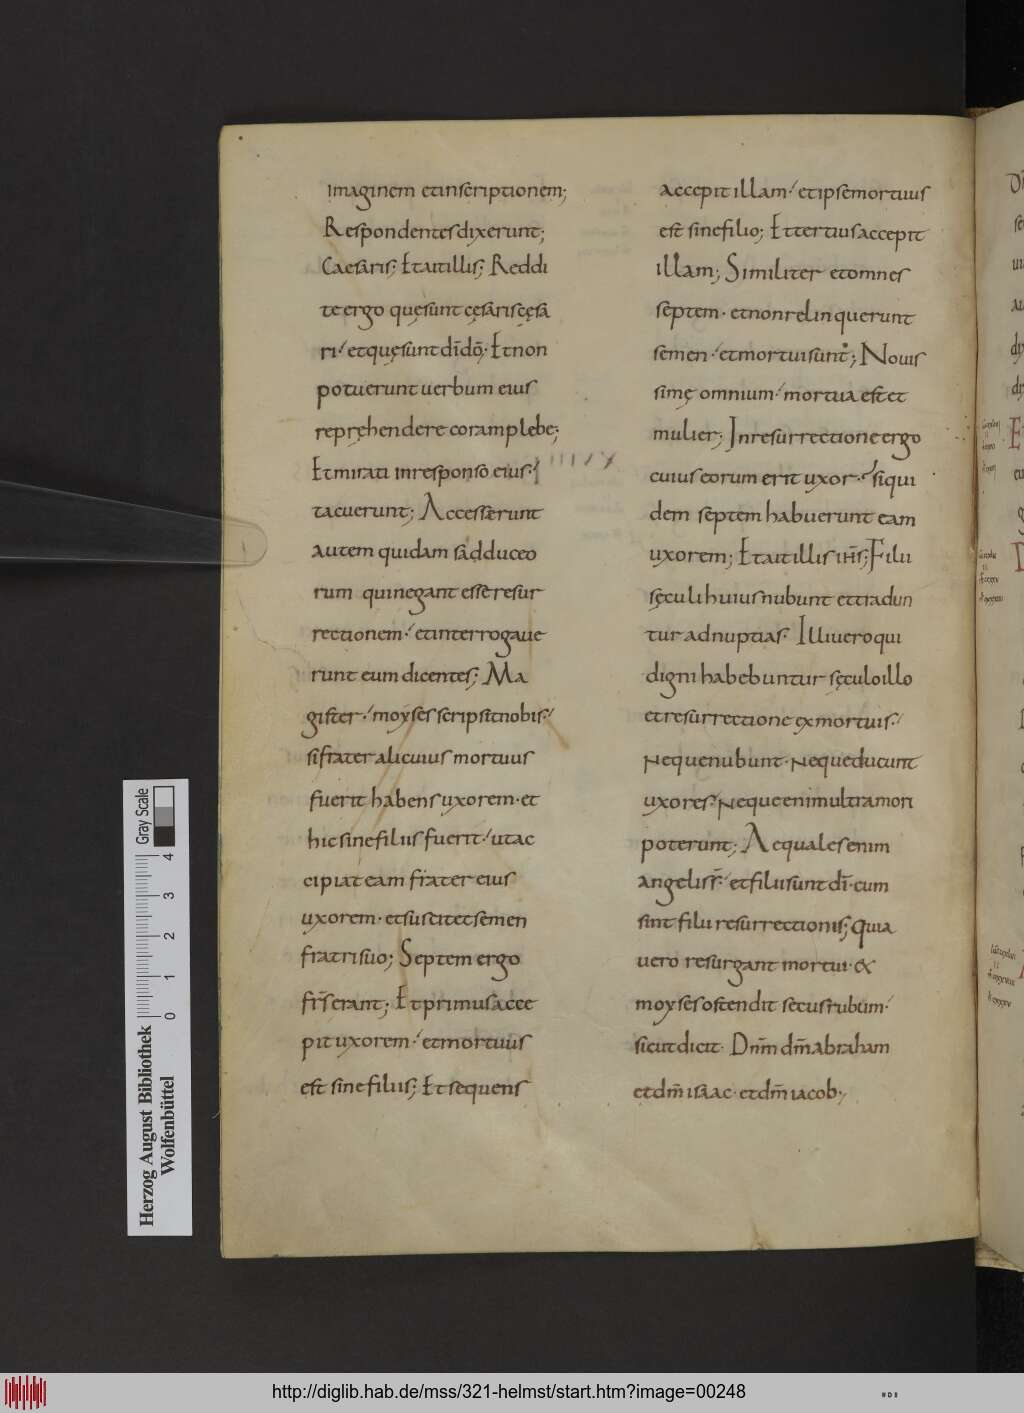 imaginem et inscriptionem;
Respondentes dixerunt;
Caesaris; Et ait illis; Reddi
te ergo quę sunt cęsaris cęsa
ri·/ et quę sunt dī dō; Et non
potuerunt uerbum eius
repręhendere coram plebe;
Et mirati in responso eius·/
tacuerunt; Accesserunt
autem quidam sadduceo
rum qui negant esse resur
rectionem·/ et interrogaue
runt eum dicentes; Ma
gister·/ moyses scripsit nobis·/
si frater alicuius mortuus
fuerit habens uxorem· et
hic sine filiis fuerit·/ ut ac
cipiat eam frater eius
uxorem· et suscitet semen
fratri suo; Septem ergo
frs̄ erant; Et primus acce
pit uxorem·/ et mortuus
est sine filiis; Et sequens
accepit illam·/ et ipse mortuus
est sine filio; Et tertius accepit
illam; Similiter et omnes
septem· et non relinquerunt
semen·/ et mortui sunt; Nouis
simę omnium·/ mortua est et
mulier; In resurrectione ergo
cuius eorum erit uxor·? siqui
dem septem habuerunt eam
uxorem; Et ait illis ihs̄; Filii
sęculi huius nubunt et tradun
tur ad nuptias· Illi uero qui
digni habebuntur sęculo illo
et resurrectione ex mortuis·/
Neque nubunt· Neque ducunt
uxores·/ Neque enim ultra mori
poterunt; Aequales enim
angelis s̄·/ et filii sunt dī· cum
sint filii resurrectionis; quia
uero resurgant mortui· &x
moyses ostendit secus rubum·/
sicut dicit· Dnm̄ dm̄ abraham
et dm̄ isaac· et dm̄ iacob·/
Gray Scale
0 1 2 3 4
Herzog August Bibliothek
Wolfenbüttel
http://diglib.hab.de/mss/321-helmst/start.htm?image=00248